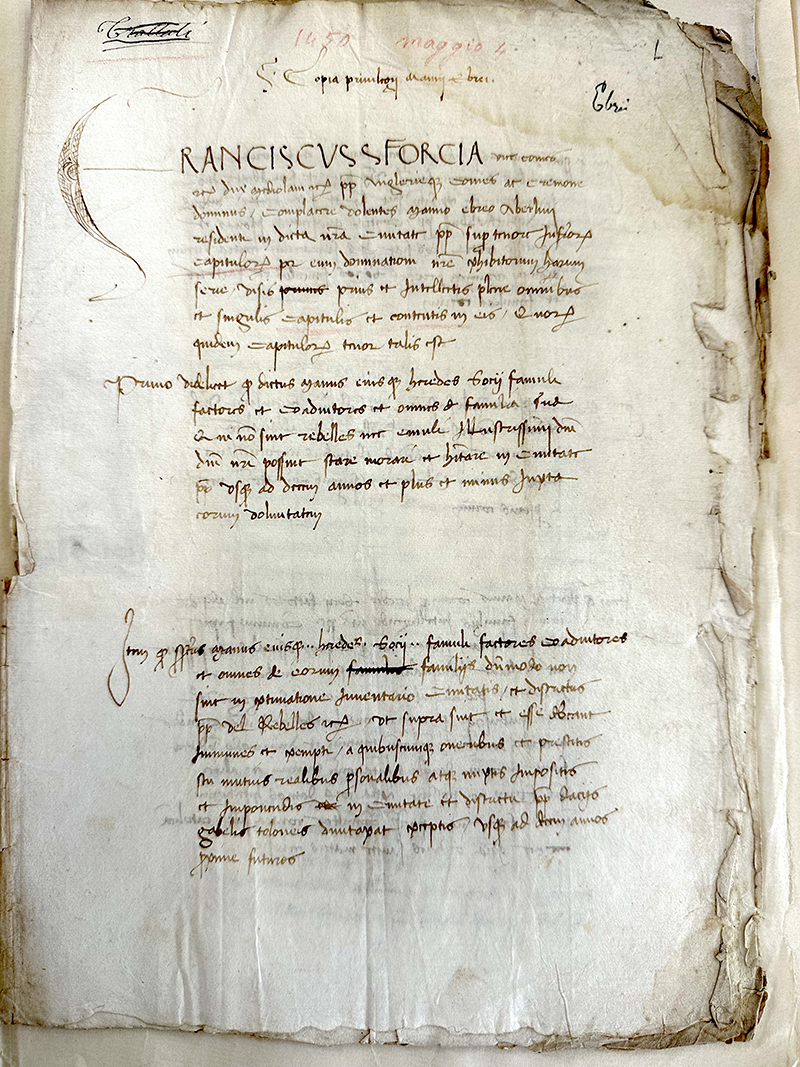 Trattati
1450 maggio 4
1
Copia privilegii Manni Ebrei.
Ebrei
FRANCISCVS SFORCIA vice comes
Anglerieq Comes ac Cremone
dominus / Complacere volentes Manno ebreo
residenti in dicta nrã Civitate pp̃ suptenore Infrõr
Capitulor per eum dominationi nrẽ exhibitorum harum
serie, visis prius et Intellectis plene omnibus
et singulis Capitulis et contentis in eis / Quor
quidem Capitulor tenor talis est
Primo videlicet q dictus Manus eiusq heredes Socij famuli
factores et Coadiutores et omnes de familia
nõ sint rebelles nec emuli Illustrissimi dni
dni nri possint stare morari et hitare in Civitate
pp̃ usq ad decem annos et plus et minus Iuxta
eorum voluntatem
Item q Manus eiusq heredes Socij famuli factores Coadiutores
et omnes de eorum familijs dũmodo non
sint in extimatione Inventario Civitatis / et districtus
pp̃ vel Rebelles ut supra sint et esse debeant
Immunes et exempti / a quibuscumq oneribus et prestitis
seu mutuis realibus psonalibus atq mixtis Impositis
et Imponendis in Civitate et districtu pp̃ dacijs
gabelis toloneis dumtaxat exceptis / usq ad decem annos
pxime futuros